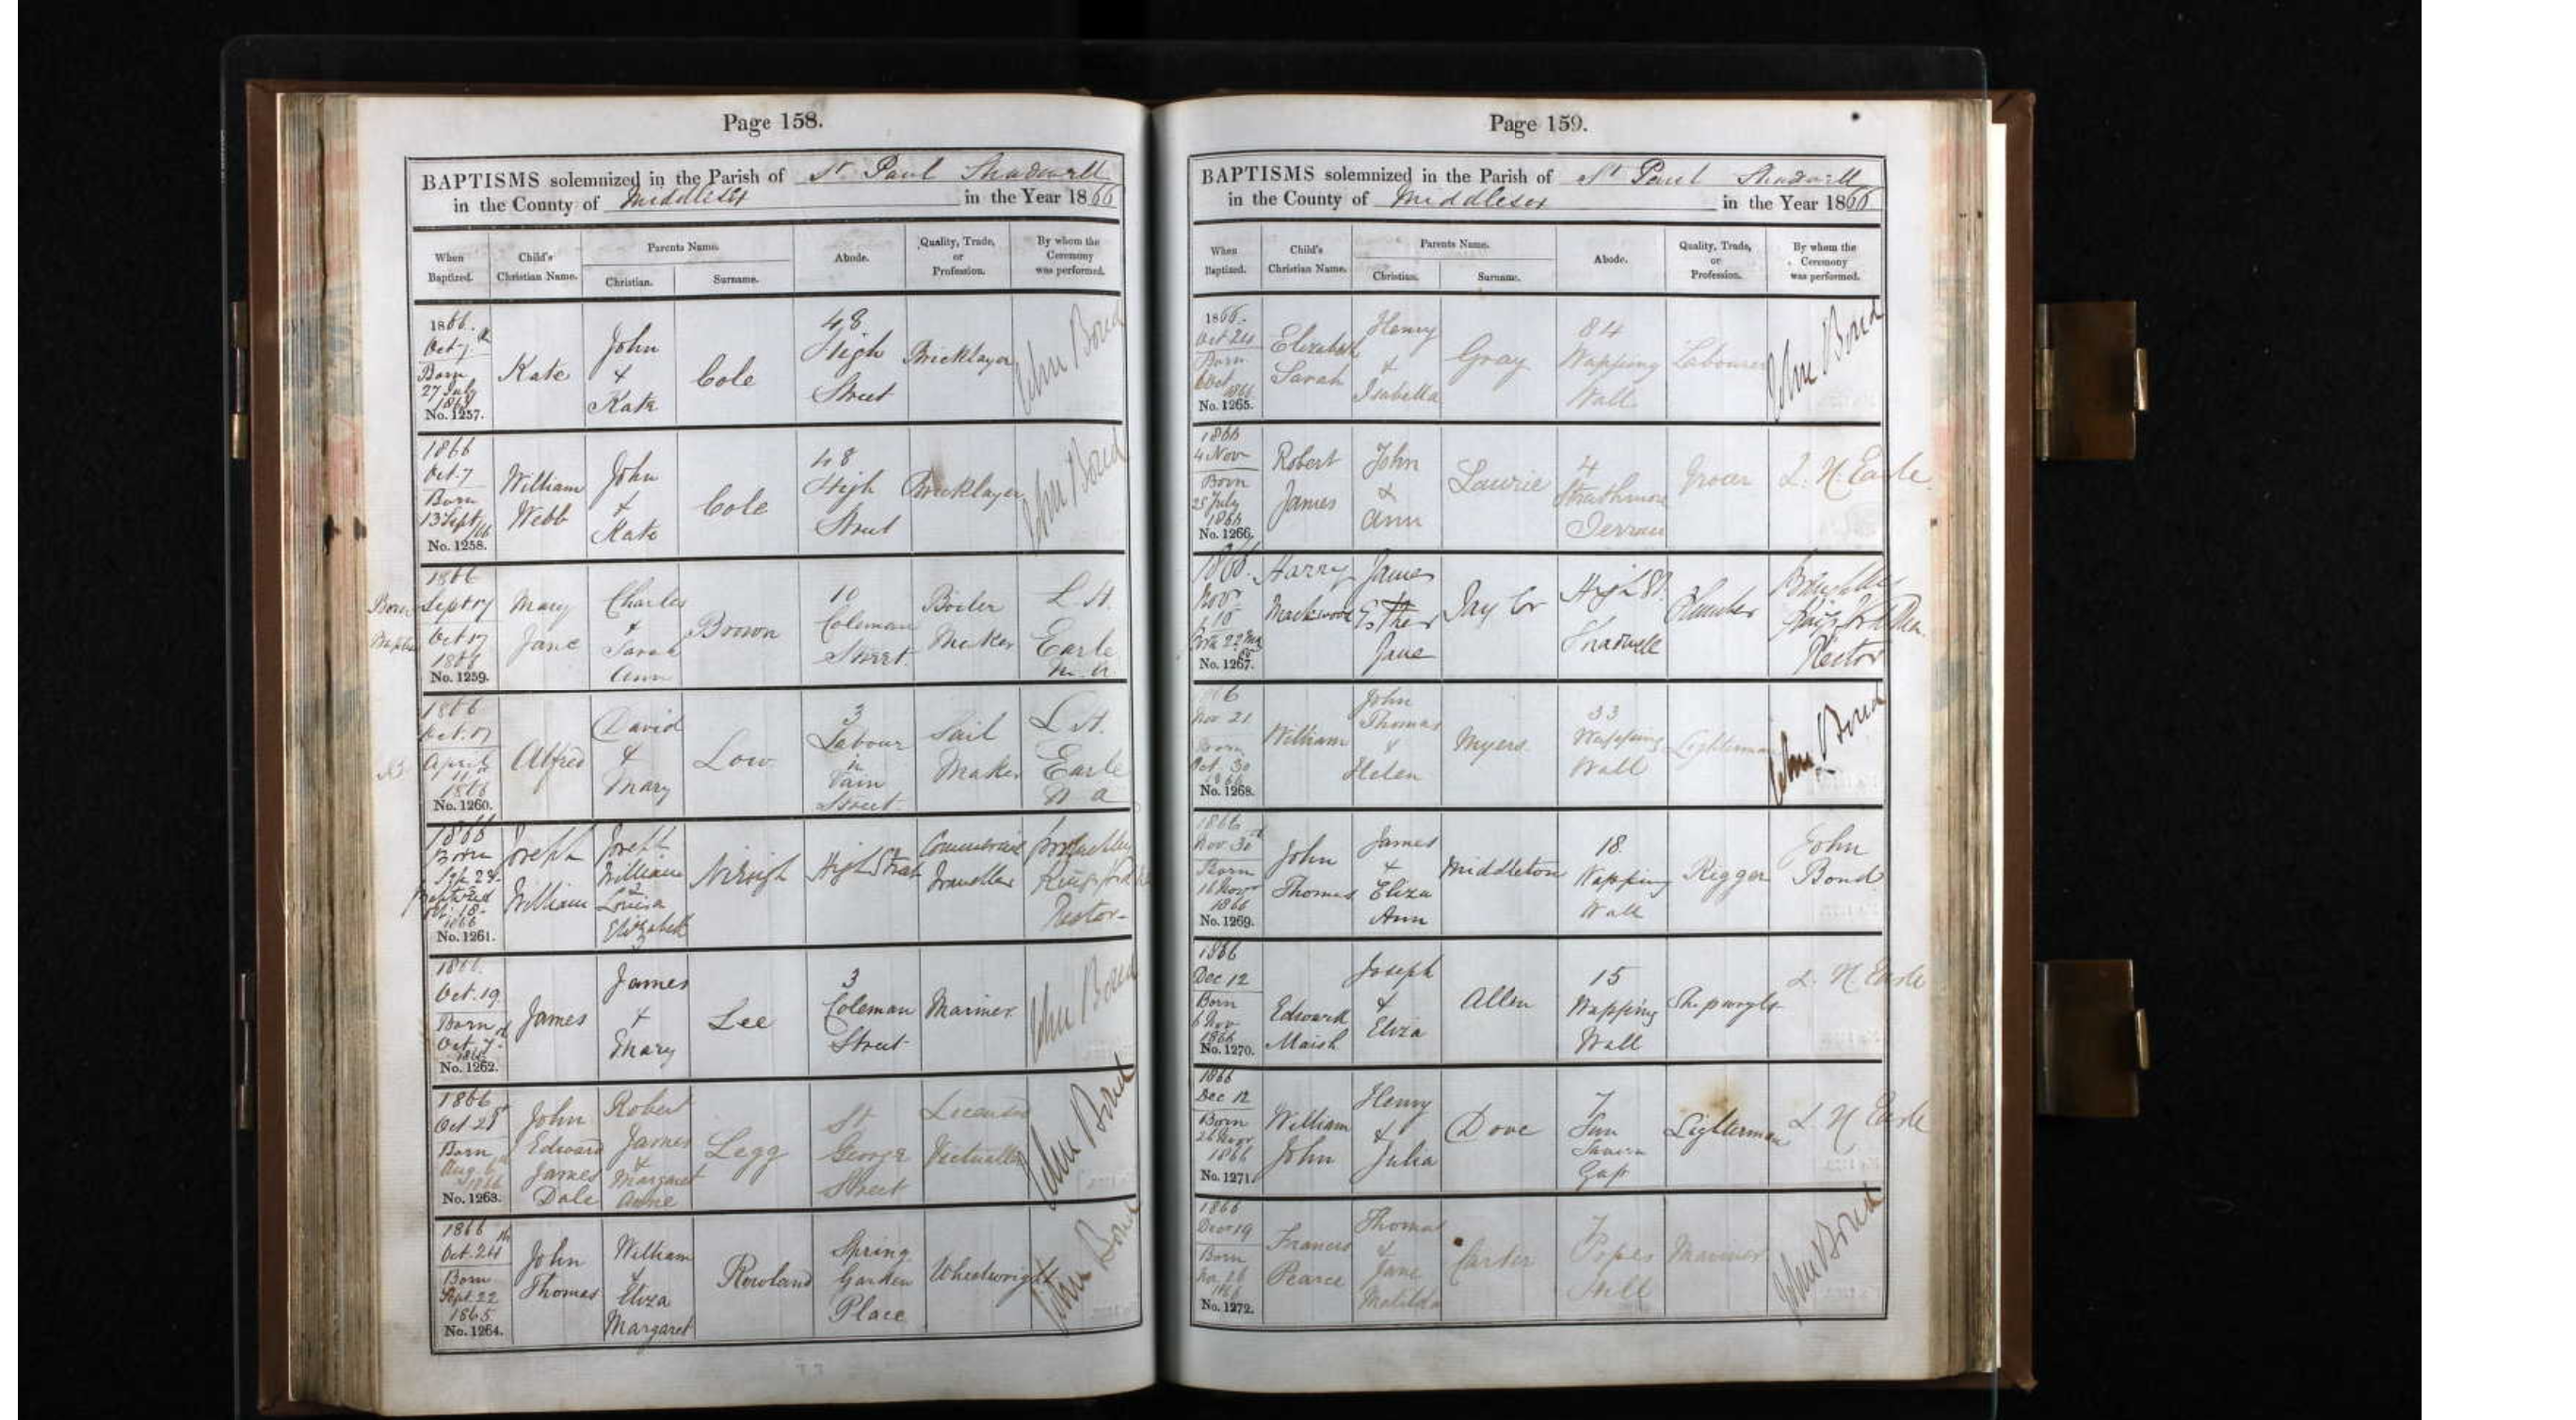 Page 158.
BAPTISMS solemnized in the Parish of St. Paul Shadwell
in the County of Middlesex in the Year 1866
When Baptized.
Child's Christian Name.
Parents Name.
Christian.
Surname.
Abode.
Quality, Trade, or Profession.
By whom the Ceremony was performed.
1866.
Oct 7
Born
27 July
No. 1257.
Kate
John
&
Kate
Cole
48
High
Street
Bricklayer
John Bond
1866
Oct. 7
Born
13 Sept/66
No. 1258.
William
Webb
John
&
Kate
Cole
48
High
Street
Bricklayer
John Bond
1866
Born Sept 17
Oct 17
1866
No. 1259.
Mary
Jane
Charles
&
Sarah
Ann
Brown
10
Coleman
Street
Boiler
Maker
L. H.
Earle
M. A.
1866
Oct. 17
April
11
No. 1260.
Alfred
David
&
Mary
Low
3
Labour
in
Vain
Street
Sail
Maker
L. H.
Earle
M A
1866
Born
Baptized
Oct. 18-
1866
No. 1261.
Joseph
William
Joseph
William
&
Louisa
Elizabeth
High Street
Commercial
Traveller
Rector-
1866.
Oct. 19
Born
Oct. 7
No. 1262.
James
James
&
Mary
Lee
3
Coleman
Street
Mariner
John Bond
1866
Oct. 28
Born
Aug. 6
1866
No. 1263.
John
Edward
James
Dale
Robert
James
&
Margaret
Anne
Legg
St
George
Street
Licensed
Victualler
John Bond
1866
Oct. 24th
Born
Sept. 22
1865
No. 1264.
John
Thomas
William
&
Eliza
Margaret
Rowland
Spring
Garden
Place
Wheelwright
John Bond
Page 159.
BAPTISMS solemnized in the Parish of St Paul Shadwell
in the County of Middlesex in the Year 1866
When Baptized.
Child's Christian Name.
Parents Name.
Christian.
Surname.
Abode.
Quality, Trade, or Profession.
By whom the Ceremony was performed.
1866.
Oct 24
Born
6 Oct
1866
No. 1265.
Elizabeth
Sarah
Henry
&
Isabella
Gray
84
Wapping
Wall
Labourer
John Bond
1866
4 Nov
Born
25 July
1866
No. 1266.
Robert
James
John
&
Ann
Laurie
4
Strathmore
Terrace
Grocer
L. H. Earle
1866.
Nov
18
Born 22
No. 1267.
Harry
James
Esther
Jane
High St.
Shadwell
Plumber
Rector
Nov. 21
Born
Oct. 30
1866
No. 1268.
William
John
Thomas
&
Helen
Myers
33
Wapping
Wall
Lighterman
John Bond
1866
Nov 30
Born
16 Nov
1866
No. 1269.
John
Thomas
James
&
Eliza
Ann
Middleton
18.
Wapping
Wall
Rigger
John
Bond
1866
Dec 12
Born
6 Nov
1866
No. 1270.
Edward
Joseph
&
Eliza
Allen
15
Wapping
Wall
L. H. Earle
1866
Dec 12
Born
26 Nov
1866
No. 1271.
William
John
Henry
&
Julia
Dove
7
Sun
Tavern
Gap
Lighterman
L. H Earle
1866
Dec 19
Born
No. 1272.
Francis
Pearce
Thomas
&
Jane
Matilda
Carter
7
Popes
Hill
Mariner
John Bond